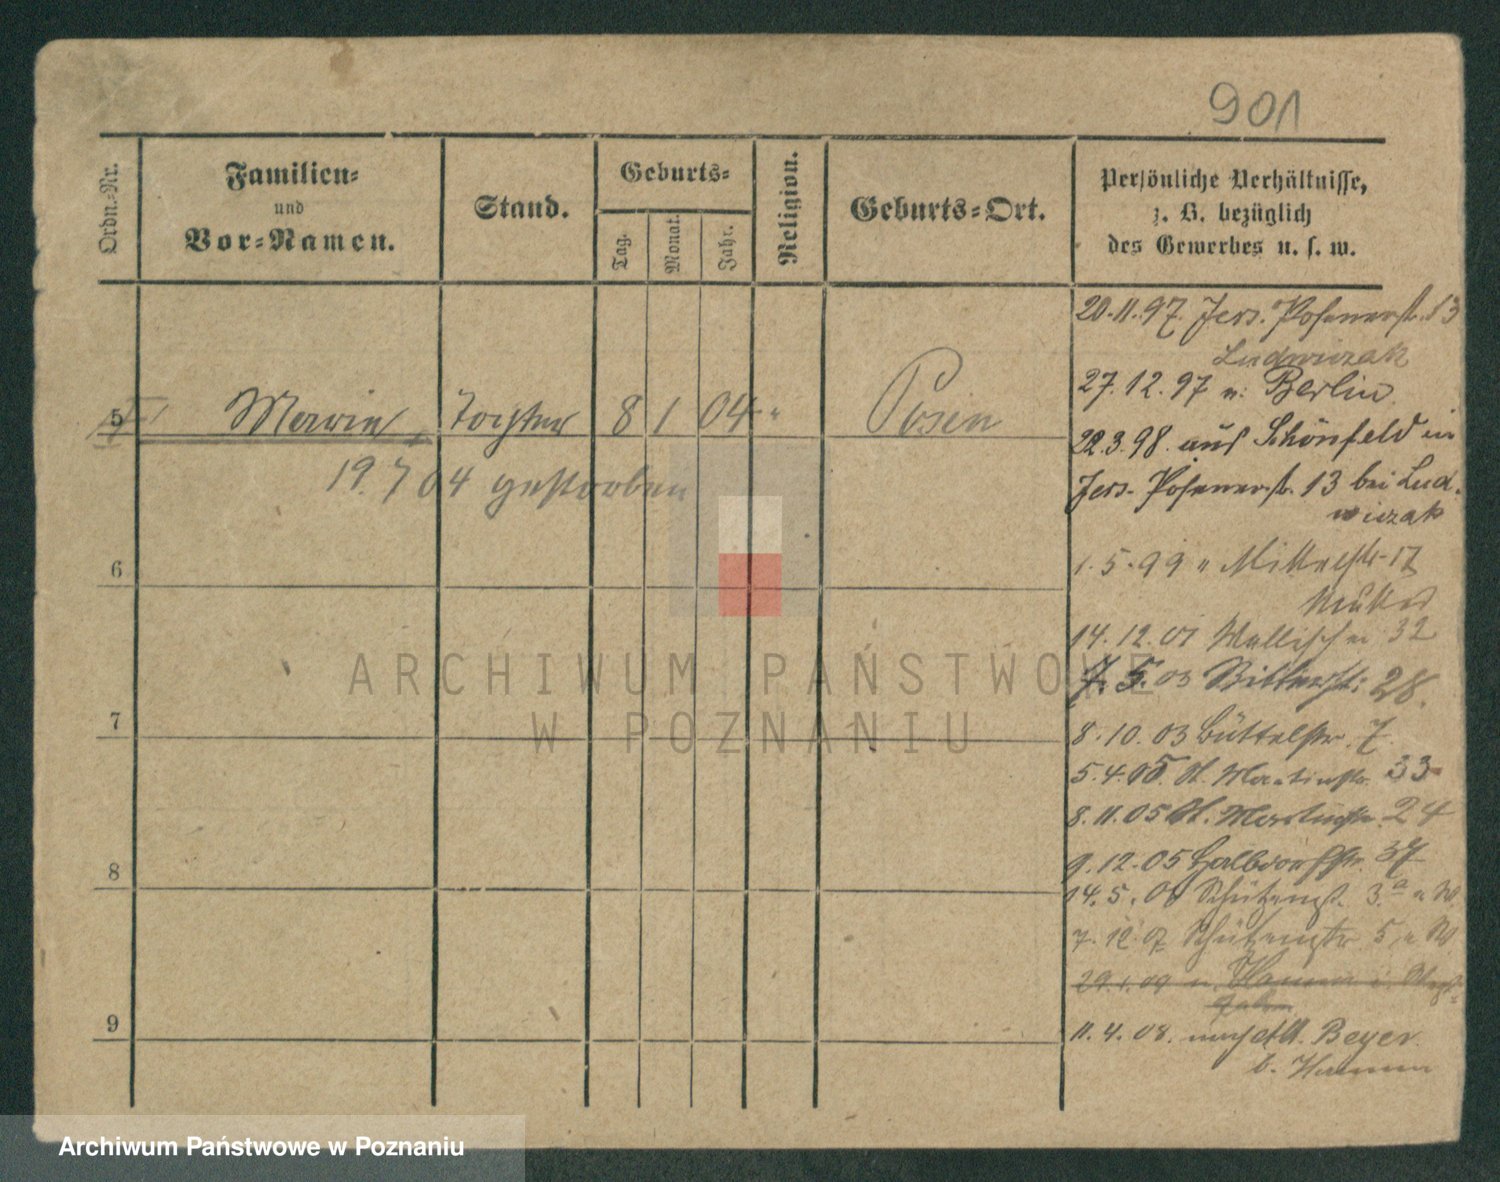 901
Ordn.-Nr.
Familien-
und
Vor-Namen.
Stand.
Geburts-
Tag.
Monat.
Jahr.
Religion.
Geburts-Ort.
Persönliche Verhältnisse,
z. B. bezüglich
des Gewerbes u. s. w.
20.11.97. Jers. Posenerstr. 13
Ludwiczak
27.12.97 n. Berlin
5 Tochter 8 1 04 " Posen
22.3.98. aus Schönfeld in
Jers. Posenerstr. 13 bei Lud-
wiczak
19. 7 04 gestorben
6
1.5.99 " Mittelstr. 17
Mutter
14.12.01 Wallischei 32
7. 5. 03 28.
7
8.10.03 Büttelstr. 7.
5.4.05. St. Martinstr. 33
8.11.05 St. Martinstr. 24
8
9.12.05 Halbdorfstr. 37
14.5.06 Schützenstr. 3.a
7.12.07 Schützenstr 5
9
29.1.09 n. Hamm i.
11.4.08. nach Beyer
b. Hamm
ARCHIWUM PAŃSTWOWE
W POZNANIU
Archiwum Państwowe w Poznaniu